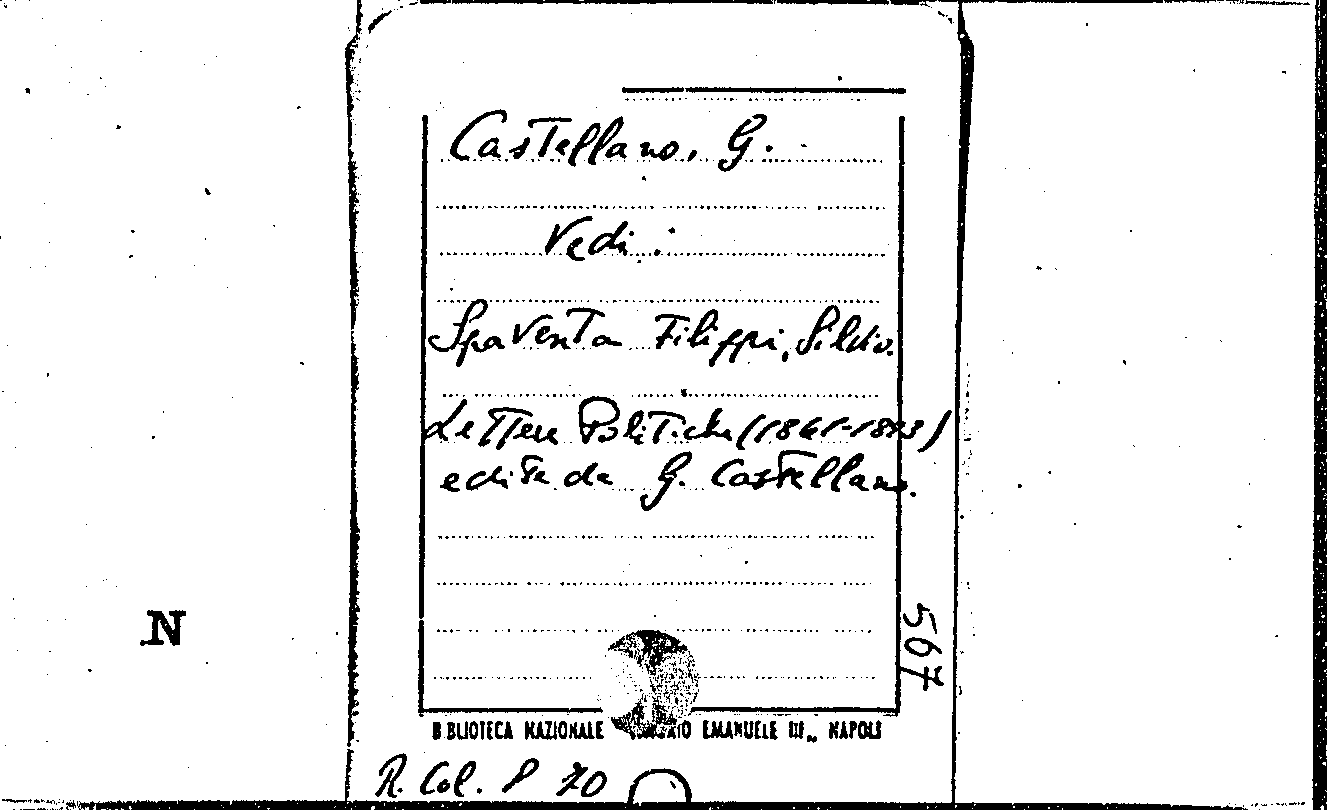 Castellano, G.
Vedi:
Spaventa Filippi, Silvio.
Lettere Politiche (1861-1893)
edite da G. Castellano.
567
N
BIBLIOTECA NAZIONALE EMANUELE III„ NAPOLI
R. Col. P 70